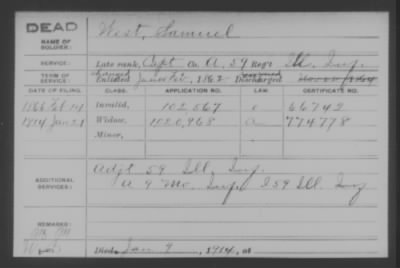 DEAD
NAME OF SOLDIER: West, Samuel
SERVICE: Late rank, Capt Co. A, 59 Reg't Ill. Inf.
TERM OF SERVICE: Enlisted 1862 Discharged
DATE OF FILING. CLASS. APPLICATION NO. LAW. CERTIFICATE NO.
Invalid, 102,567 66742
1914 Jan 21 Widow, 1020,968 774778
Minor,
ADDITIONAL SERVICES: Adjt 59 Ill. Inf.
A 9 Mo. Inf. I 59 Ill. Inf
REMARKS:
Died Jan 9, 1914, at